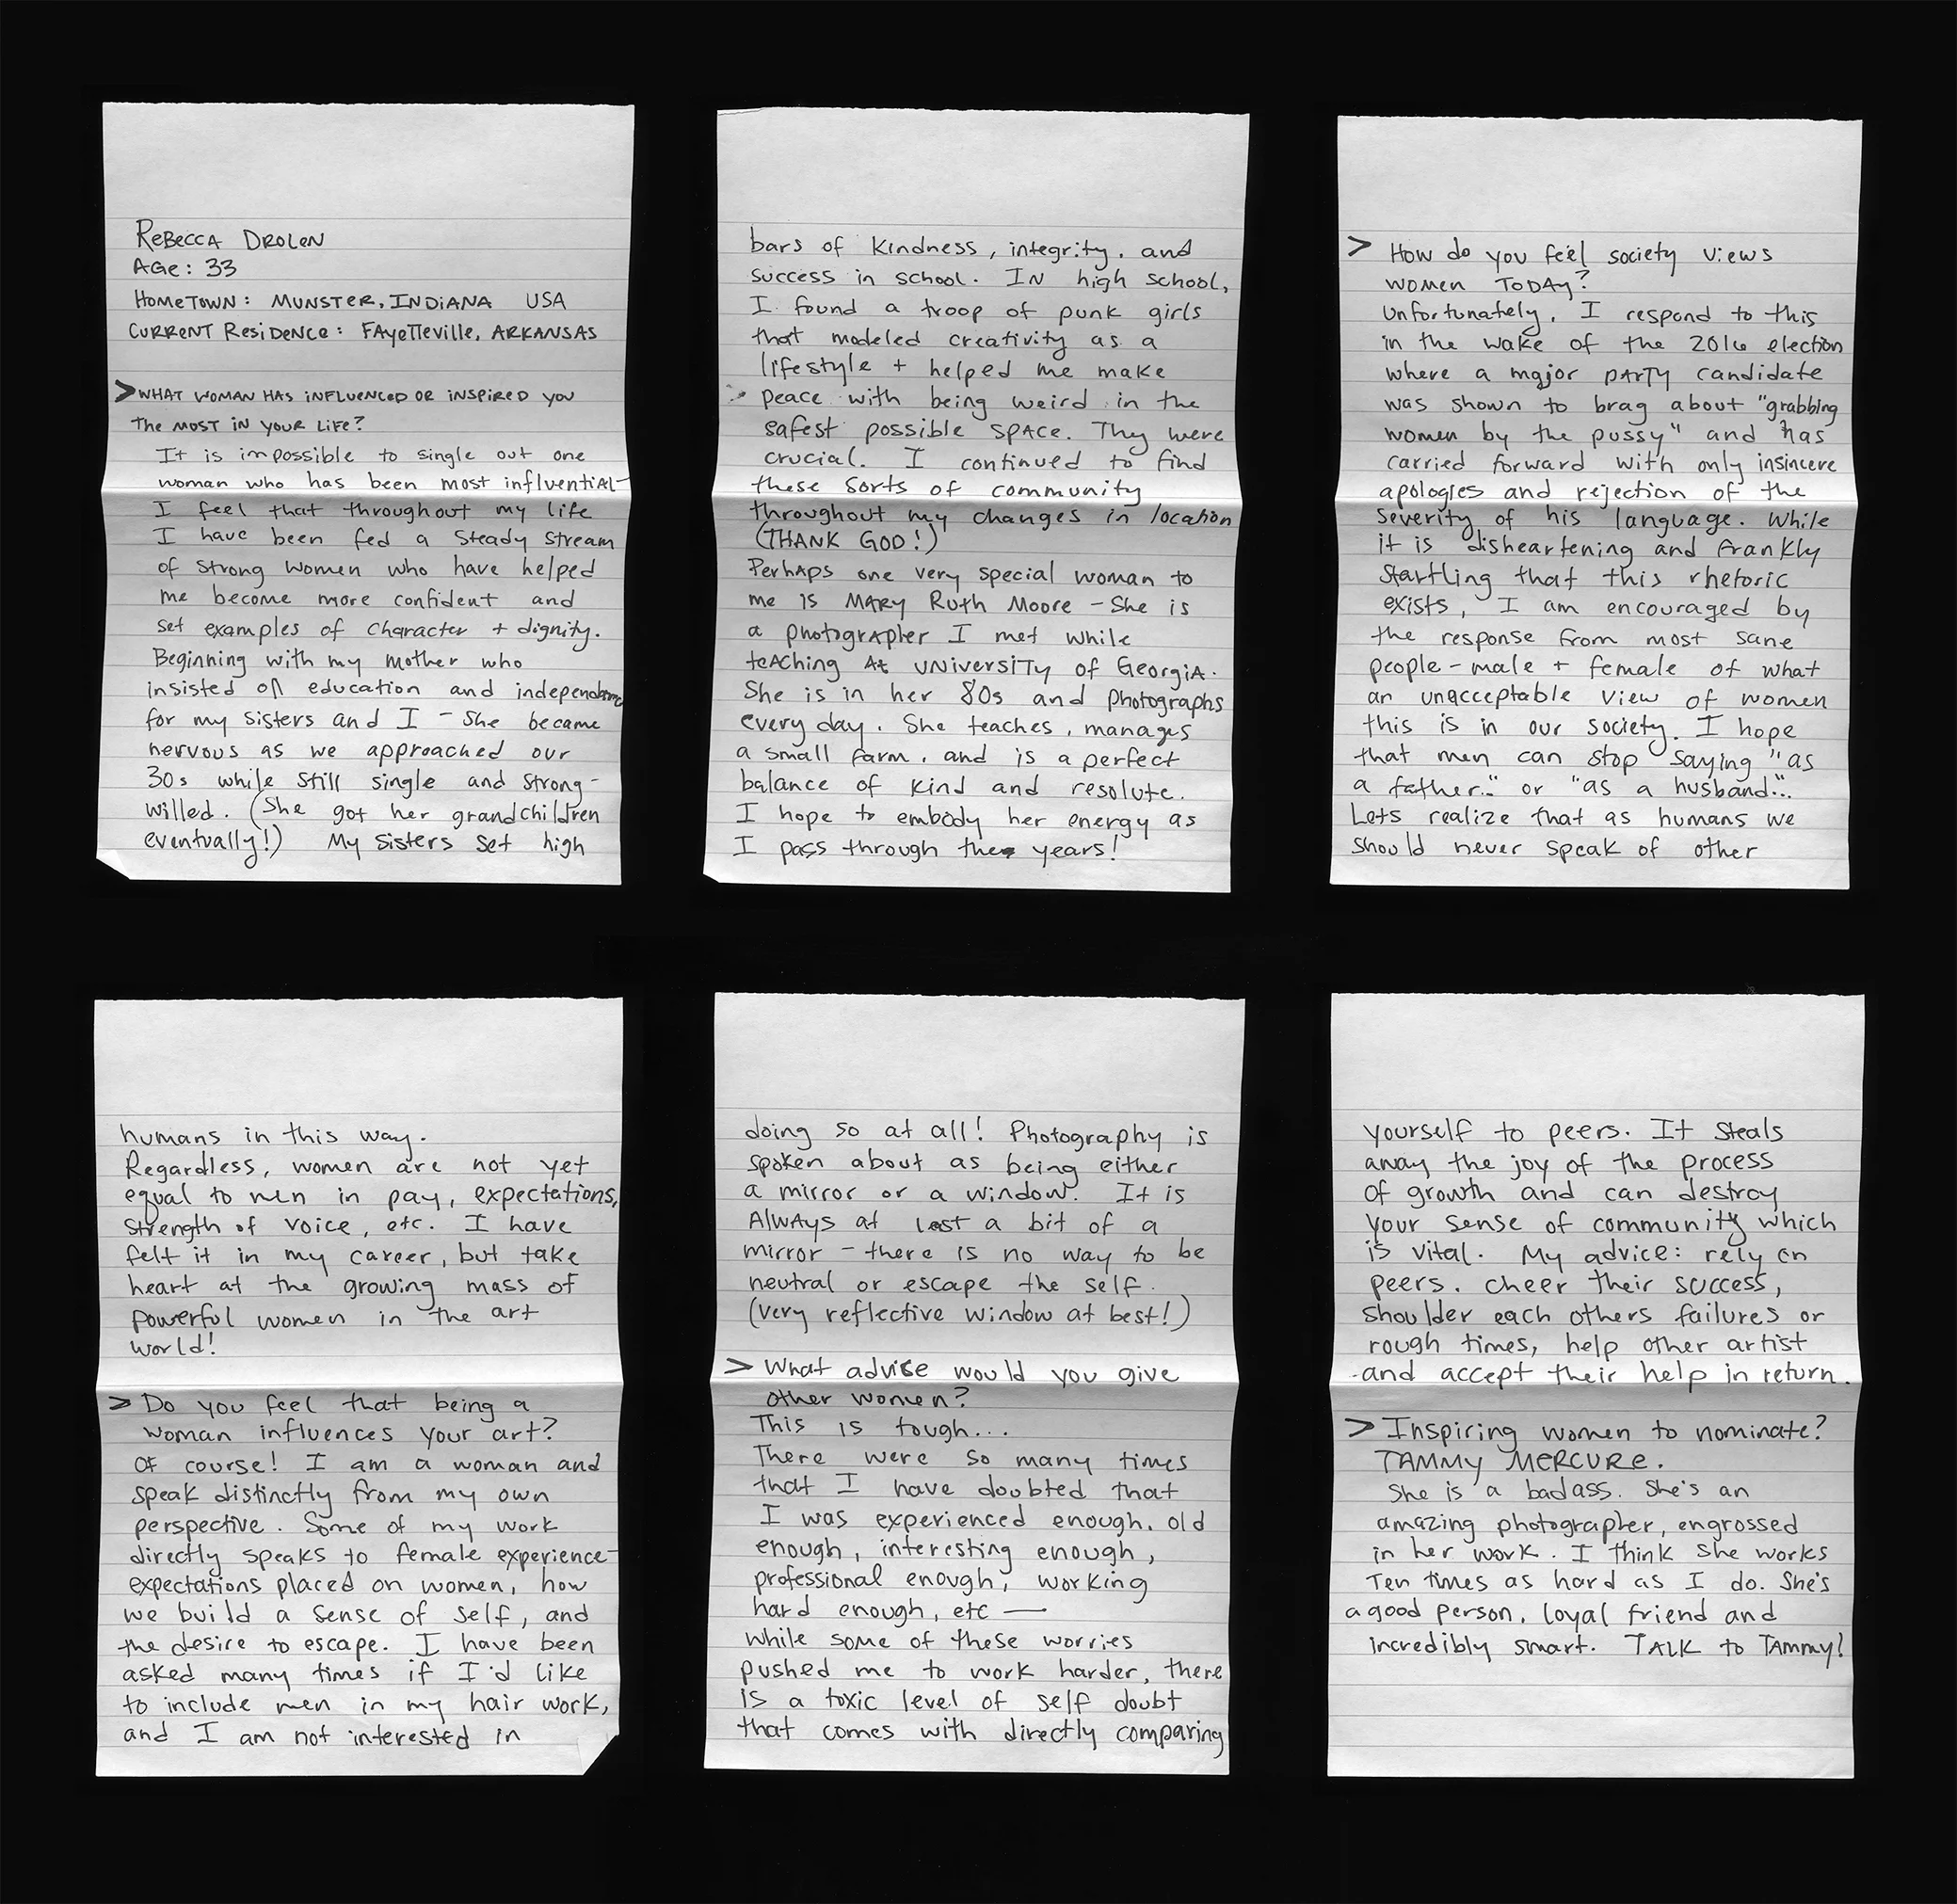 REBECCA DROLEN
AGE: 33
HOMETOWN: MUNSTER, INDIANA USA
CURRENT RESIDENCE: FAYETTEVILLE, ARKANSAS
> WHAT WOMAN HAS INFLUENCED OR INSPIRED YOU
THE MOST IN YOUR LIFE?
It is impossible to single out one
woman who has been most influential -
I feel that throughout my life
I have been fed a steady stream
of strong women who have helped
me become more confident and
set examples of character + dignity.
Beginning with my mother who
insisted on education and independence
for my sisters and I - she became
nervous as we approached our
30s while still single and strong-
willed. (She got her grandchildren
eventually!) My sisters set high
bars of kindness, integrity, and
success in school. IN high school,
I found a troop of punk girls
that modeled creativity as a
lifestyle + helped me make
peace with being weird in the
safest possible space. Thy were
crucial. I continued to find
these sorts of community
throughout my changes in location
(THANK GOD!)
Perhaps one very special woman to
me is MARY RUTH MOORE - She is
a photographer I met while
teaching at UNIVERSITY of GEORGIA.
She is in her 80s and photographs
every day. She teaches, manages
a small farm, and is a perfect
balance of kind and resolute.
I hope to embody her energy as
I pass through the years!
> How do you feel society views
women TODAY?
Unfortunately, I respond to this
in the wake of the 2016 election
where a major PARTY candidate
was shown to brag about "grabbing
women by the pussy" and has
carried forward with only insincere
apologies and rejection of the
severity of his language. While
it is disheartening and frankly
startling that this rhetoric
exists, I am encouraged by
the response from most sane
people - male + female of what
an unacceptable view of women
this is in our society. I hope
that men can stop saying "as
a father.." or "as a husband"...
Lets realize that as humans we
should never speak of other
humans in this way.
Regardless, women are not yet
equal to men in pay, expectations,
strength of voice, etc. I have
felt it in my career, but take
heart at the growing mass of
powerful women in the art
world!
> Do you feel that being a
woman influences your art?
Of course! I am a woman and
speak distinctly from my own
perspective. Some of my work
directly speaks to female experience -
expectations placed on women, how
we build a sense of self, and
the desire to escape. I have been
asked many times if I'd like
to include men in my hair work,
and I am not interested in
doing so at all! Photography is
spoken about as being either
a mirror or a window. It is
Always at least a bit of a
mirror - there is no way to be
neutral or escape the self.
(very reflective window at best!)
> What advice would you give
other women?
This is tough...
There were so many times
that I have doubted that
I was experienced enough, old
enough, interesting enough,
professional enough, working
hard enough, etc —
while some of these worries
pushed me to work harder, there
is a toxic level of self doubt
that comes with directly comparing
yourself to peers. It steals
away the joy of the process
of growth and can destroy
your sense of community which
is vital. My advice: rely on
peers. cheer their success,
shoulder each others failures or
rough times, help other artist
and accept their help in return.
> Inspiring women to nominate?
TAMMY MERCURE.
She is a badass. She's an
amazing photographer, engrossed
in her work. I think she works
Ten times as hard as I do. She's
a good person, loyal friend and
incredibly smart. TALK to TAmmy!